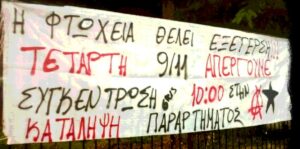 Η ΦΤΩΧΕΙΑ ΘΕΛΕΙ ΕΞΕΓΕΡΣΗ!!!
ΤΕΤΑΡΤΗ 9/11 ΑΠΕΡΓΟΥΜΕ
ΣΥΓΚΕΝΤΡΩΣΗ 10:00 ΣΤΗΝ
ΚΑΤΑΛΗΨΗ ΠΑΡΑΡΤΗΜΑΤΟΣ